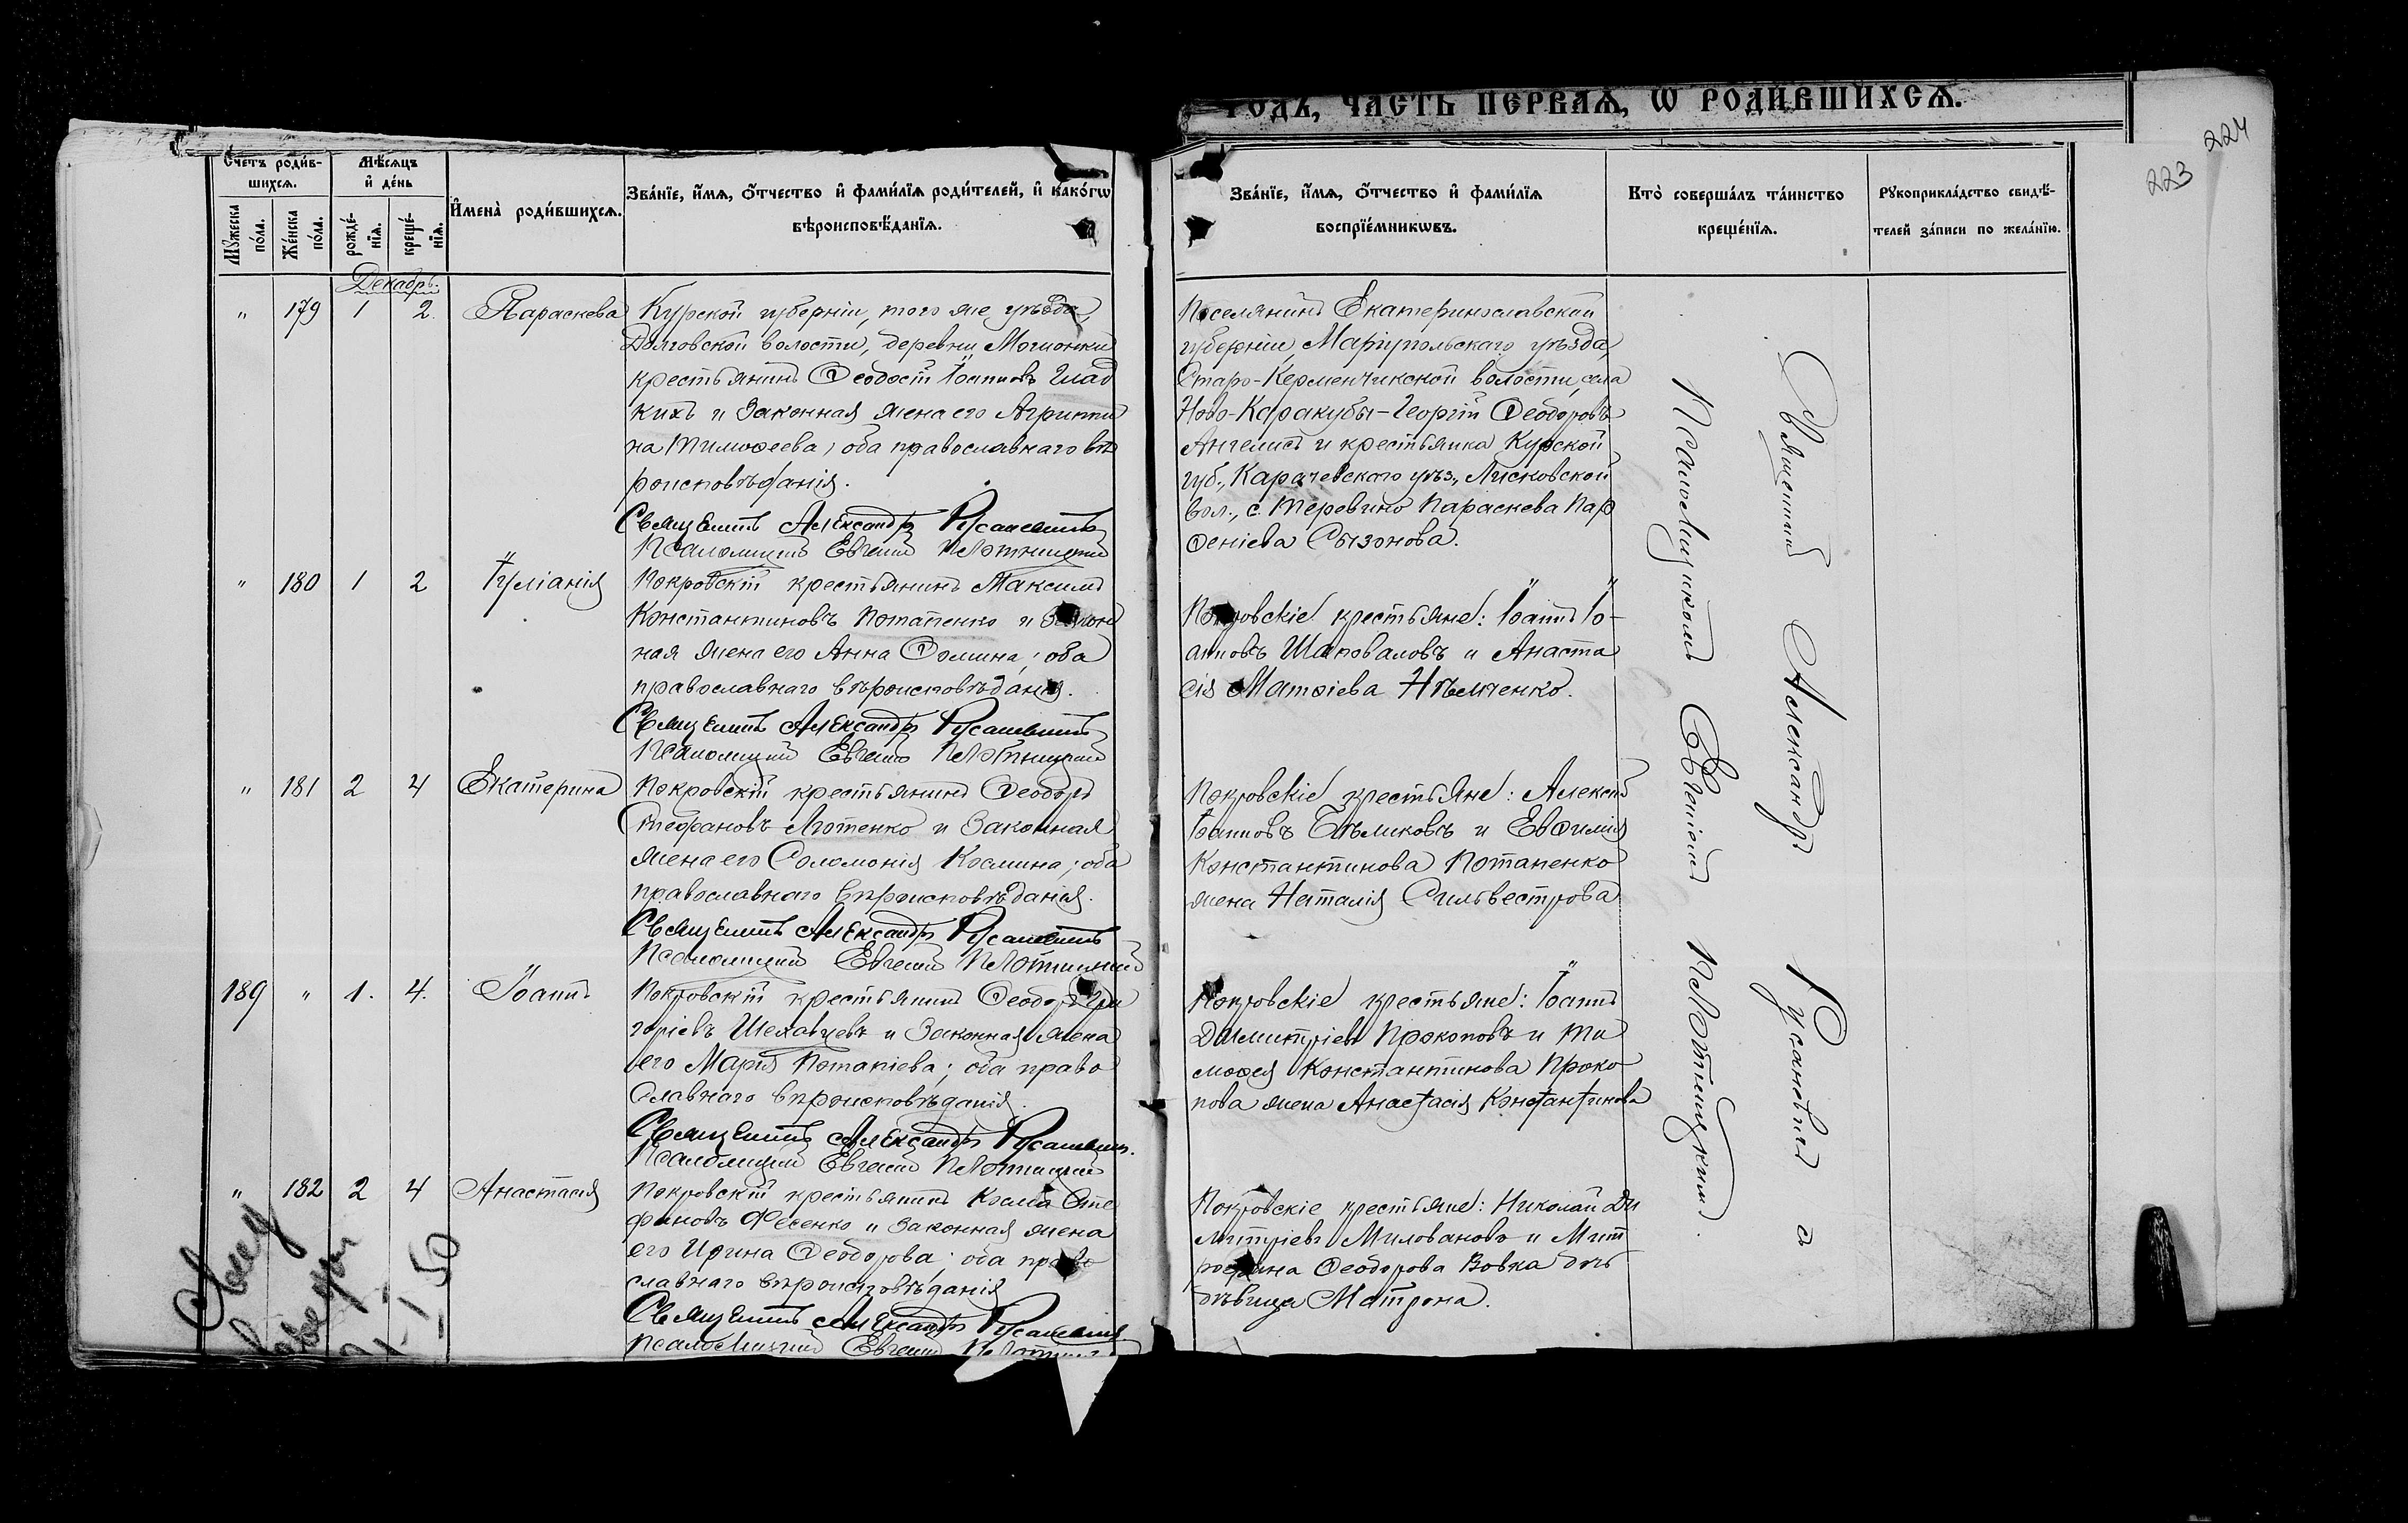 ГОДЪ, ЧАСТЬ ПЕРВАѦ, Ѡ РОДИ́ВШИХСѦ.
224
223
Счетъ роди́в-
шихсѧ.
Мѣ́сѧцъ
и҆ де́нь
Мꙋжеска
по́ла.
Же́нска
по́ла.
рожде́-
нїѧ.
креще́-
нїѧ.
И҆мена̀ роди́вшихсѧ.
Зва́нїе, и҆́мѧ, ѻ҆́тчество и҆ фами́лїѧ роди́телей, и҆ како́гѡ
вѣроисповѣ́данїѧ.
Зва́нїе, и҆́мѧ, ѻ҆́тчество и҆ фами́лїѧ
воспрїе́мникѡвъ.
Кто̀ соверша́лъ та́инство
креще́нїѧ.
Рꙋкоприкла́дство свидѣ́-
телей за́писи по жела́нїю.
Декабрь.
" 179 1 2. Параскева
Курской губерніи, того же уѣзда,
Долговской волости, деревни
крестьянинъ Ѳеодосій Іоанновъ Глад
кихъ и законная жена его Агриппи
на Тимоѳеева; оба православнаго вѣ
роисповѣданія.
Священникъ Александръ Русаневичъ
Псаломщикъ Евгеній Плотницкій
Поселянинъ Екатеринославской
губерніи, Маріупольскаго уѣзда,
Старо-Керменчикской волости, села
Ново-Каракубы - Георгій Ѳеодоровъ
Ангелисъ и крестьянка Курской
губ., Карачевскаго уѣз., Лисковской
вол., с. Теревино Параскева Пар
ѳеніева Сызонова.
" 180 1 2 Іуліанія
Покровскій крестьянинъ Максимъ
Константиновъ Потапенко и закон
ная жена его Анна Ѳомина; оба
православнаго вѣроисповѣданія.
Священникъ Александръ Русаневичъ
Псаломщикъ Евгеній Плотницкій
Покровскіе крестьяне: Іоаннъ Іо-
анновъ Шаповаловъ и Анаста
сія Матѳіева Нѣмченко.
" 181 2 4 Екатерина
Покровскій крестьянинъ Ѳеодоръ
Стефановъ Лютенко и законная
жена его Соломонія Космина; оба
православнаго вѣроисповѣданія.
Священникъ Александръ Русаневичъ
Псаломщикъ Евгеній Плотницкій
Покровскіе крестьяне: Алексій
Іоанновъ Бѣликовъ и Евѳимія
Константинова Потапенко
жена Наталія Сильвестрова
189 " 1. 4. Іоаннъ
Покровскій крестьянинъ Ѳеодоръ Гри
горіевъ Шеховцевъ и законная жена
его Марія Потапіева; оба право
славнаго вѣроисповѣданія.
Священникъ Александръ Русаневичъ.
Псаломщикъ Евгеній Плотницкій
Покровскіе крестьяне: Іоаннъ
Димитріевъ Прокоповъ и Ти
моѳея Константинова Проко
пова жена Анастасія Константинова
" 182 2 4 Анастасія
Покровскій крестьянинъ Косма Сте
фановъ Фесенко и законная жена
его Ирина Ѳеодорова; оба право
славнаго вѣроисповѣданія
Священникъ Александръ Русаневичъ
Псаломщикъ Евгеній Плотницкій
Покровскіе крестьяне: Николай Ди
митріевъ Миловановъ и Мит
рофана Ѳеодорова Вовка дочь
дѣвица Матрона.
Священникъ Александръ Русаневичъ съ
Псаломщикомъ Евгеніемъ Плотницкимъ.